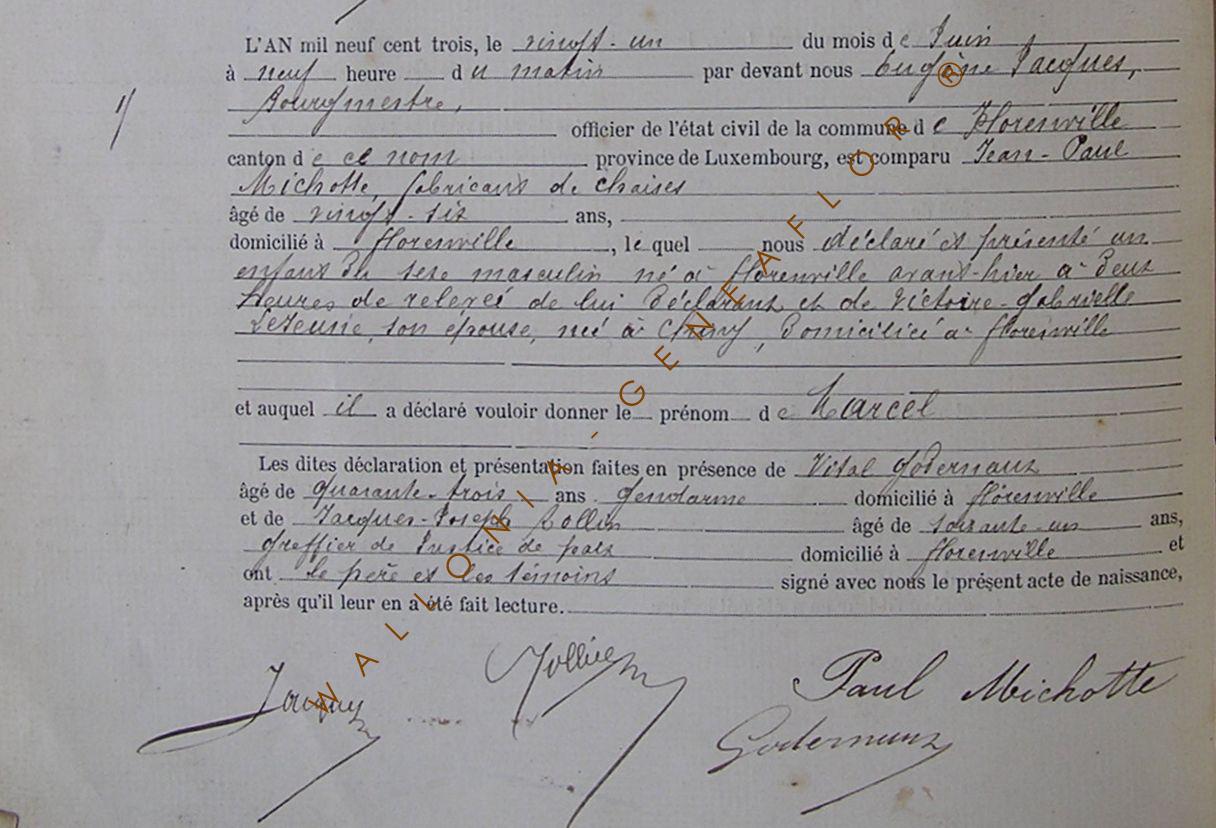 L'AN mil neuf cent trois, le vingt-un du mois de Juin
à neuf heure du matin par devant nous Eugène Jacques,
Bourgmestre,
officier de l'état civil de la commune de Florenville
canton de ce nom province de Luxembourg, est comparu Jean-Paul
Michotte, fabricant de chaises
âgé de vingt-six ans,
domicilié à Florenville, le quel nous déclaré et présenté un
enfant du sexe masculin né à Florenville avant-hier à deux
heures de relevée de lui déclarant et de Victoire-Gabrielle
son épouse, née à Chiny, domiciliée à Florenville
et auquel il a déclaré vouloir donner le prénom de Marcel
Les dites déclaration et présentation faites en présence de Vital Godernaux
âgé de quarante-trois ans Gendarme domicilié à Florenville
et de Jacques-Joseph Rollin âgé de soixante-un ans,
greffier de Justice de paix domicilié à Florenville et
ont le père et les témoins signé avec nous le présent acte de naissance,
après qu'il leur en a été fait lecture.
Jacques
Paul Michotte
Godernaux
WALLONIA-GENEAFLOR®